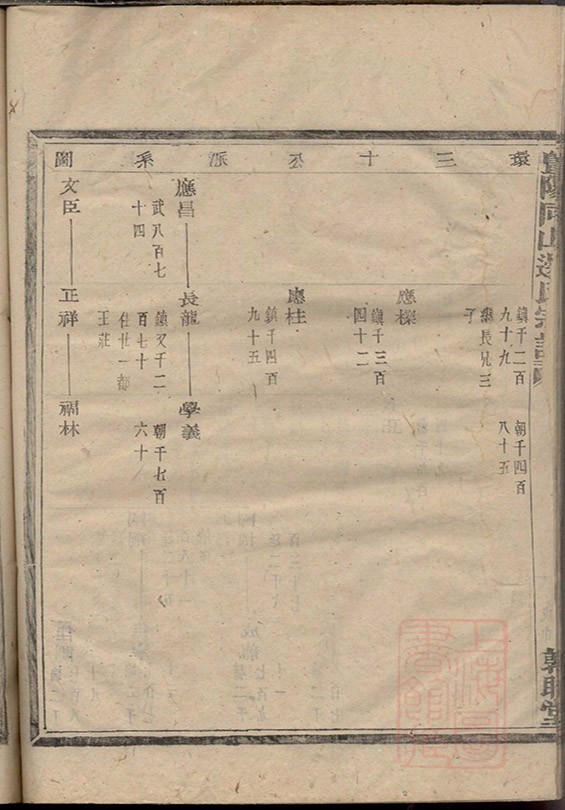 暨陽同山邊氏宗譜
敦睦堂
環三十公派系圖
鎮千二百
九十九
繼長兄三
子
朝千四百
八十五
應樑
鎮千三百
四十二
應柱
鎮千四百
九十五
應昌
武八百七
十四
長龍
鎮又千二
百七十
住廿一都
王莊
學義
朝千七百
六十
文臣
正祥
福林
上海圖
書館藏